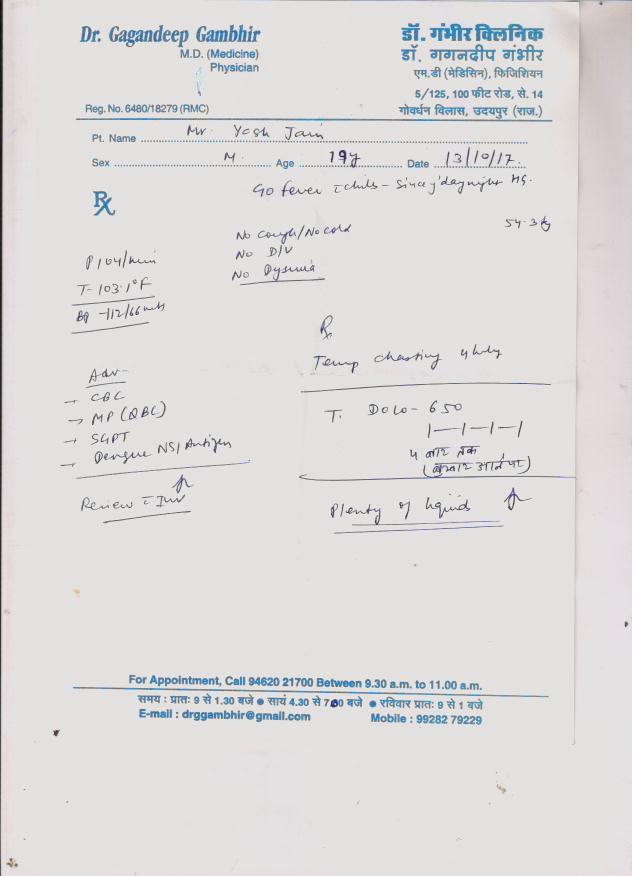 Dr. Gagandeep Gambhir
M.D. (Medicine)
Physician
Reg. No. 6480/18279 (RMC)
डॉ. गंभीर क्लिनिक
डॉ. गगनदीप गंभीर
एम.डी (मेडिसिन), फिजिशियन
5/125, 100 फीट रोड, से. 14
गोवर्धन विलास, उदयपुर (राज.)
Pt. Name Mr. Yash Jain
Sex M. Age 19y Date 13/10/17.
Rx
C/o fever c chills - since y'day night
54.3 kg
No Cough/No cold
No D/V
No Dysuria
P 104/min
T- 103.1°F
BP -112/66
Adv-
→ CBC
→ MP (QBC)
→ SGPT
→ Dengue NS1 Antigen
Review c Inv
Rx
Temp charting 4 hrly
T. DOLO - 650
1-1-1-1
4 बार तक
(बुखार आने पर)
Plenty of liquids
For Appointment, Call 94620 21700 Between 9.30 a.m. to 11.00 a.m.
समय : प्रातः 9 से 1.30 बजे ● सायं 4.30 से 7.00 बजे ● रविवार प्रातः 9 से 1 बजे
E-mail : drggambhir@gmail.com Mobile : 99282 79229